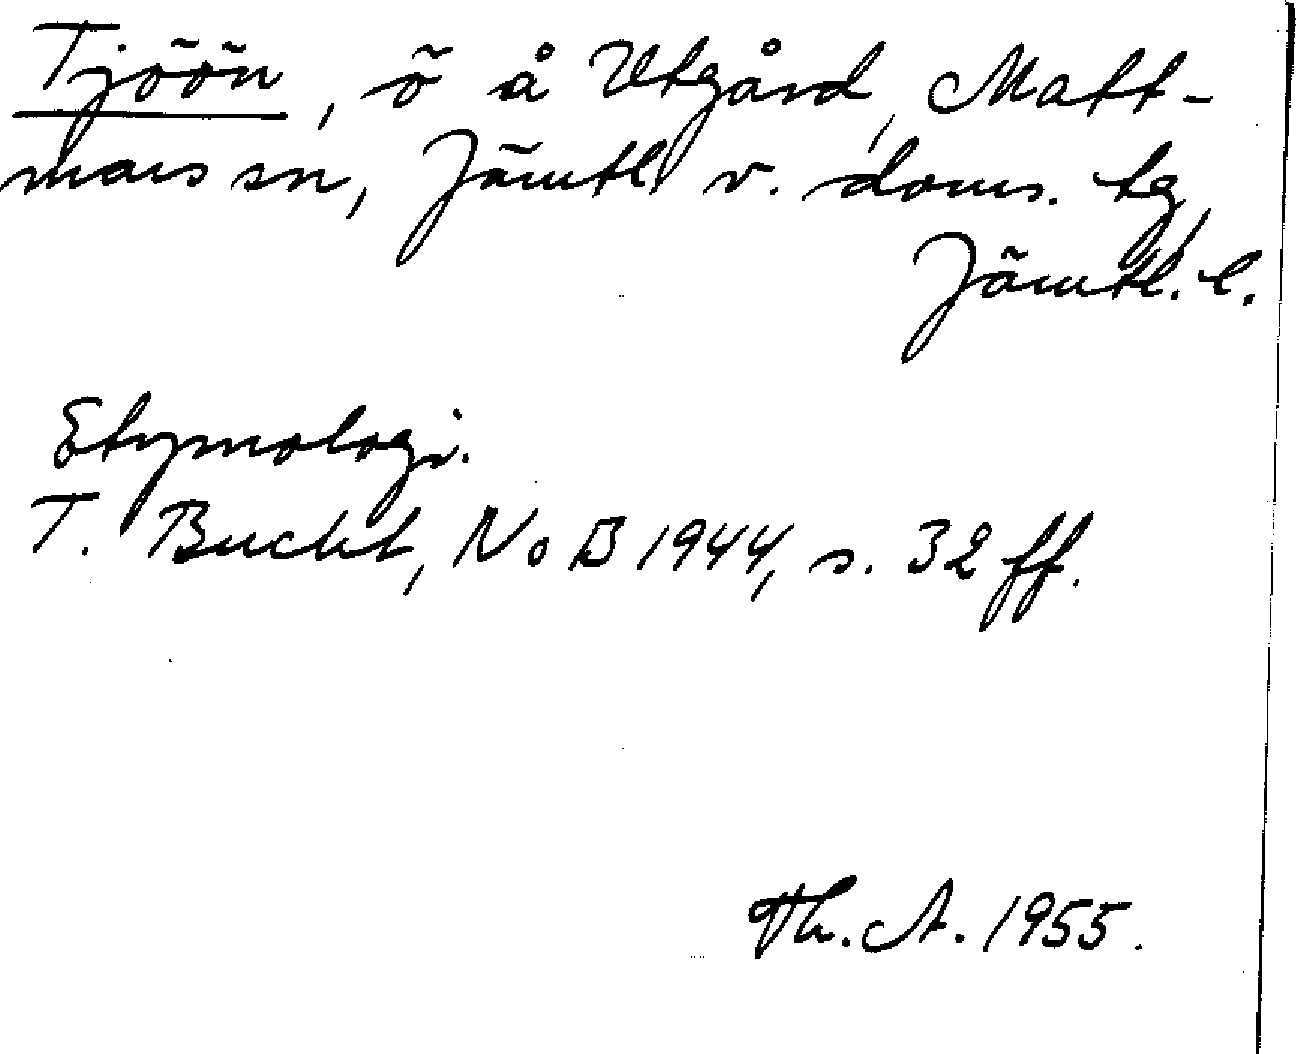 Tjöön, ö å Utgård, Matt-
mars sn, Jämtl. v. doms. tg,
Jämtl. l.
Etymologi.
T. Bucht, NoB 1944, s. 32 ff.
Th. A. 1955.